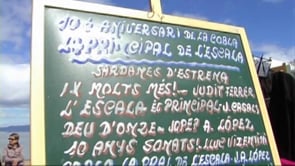 10È ANIVERSARI DE LA COBLA
LA PRINCIPAL DE L'ESCALA
SARDANES D'ESTRENA
1X MOLTS MÉS!- JUDIT FERRER
L'ESCALA ÉS PRINCIPAL- J. CASALS
DEU D'ONZE- JOPEP A. LÓPEZ
10 ANYS SONATS! LLUC VIZENTINI
LA PPAL DE L'ESCALA J.A. LÓPEZ